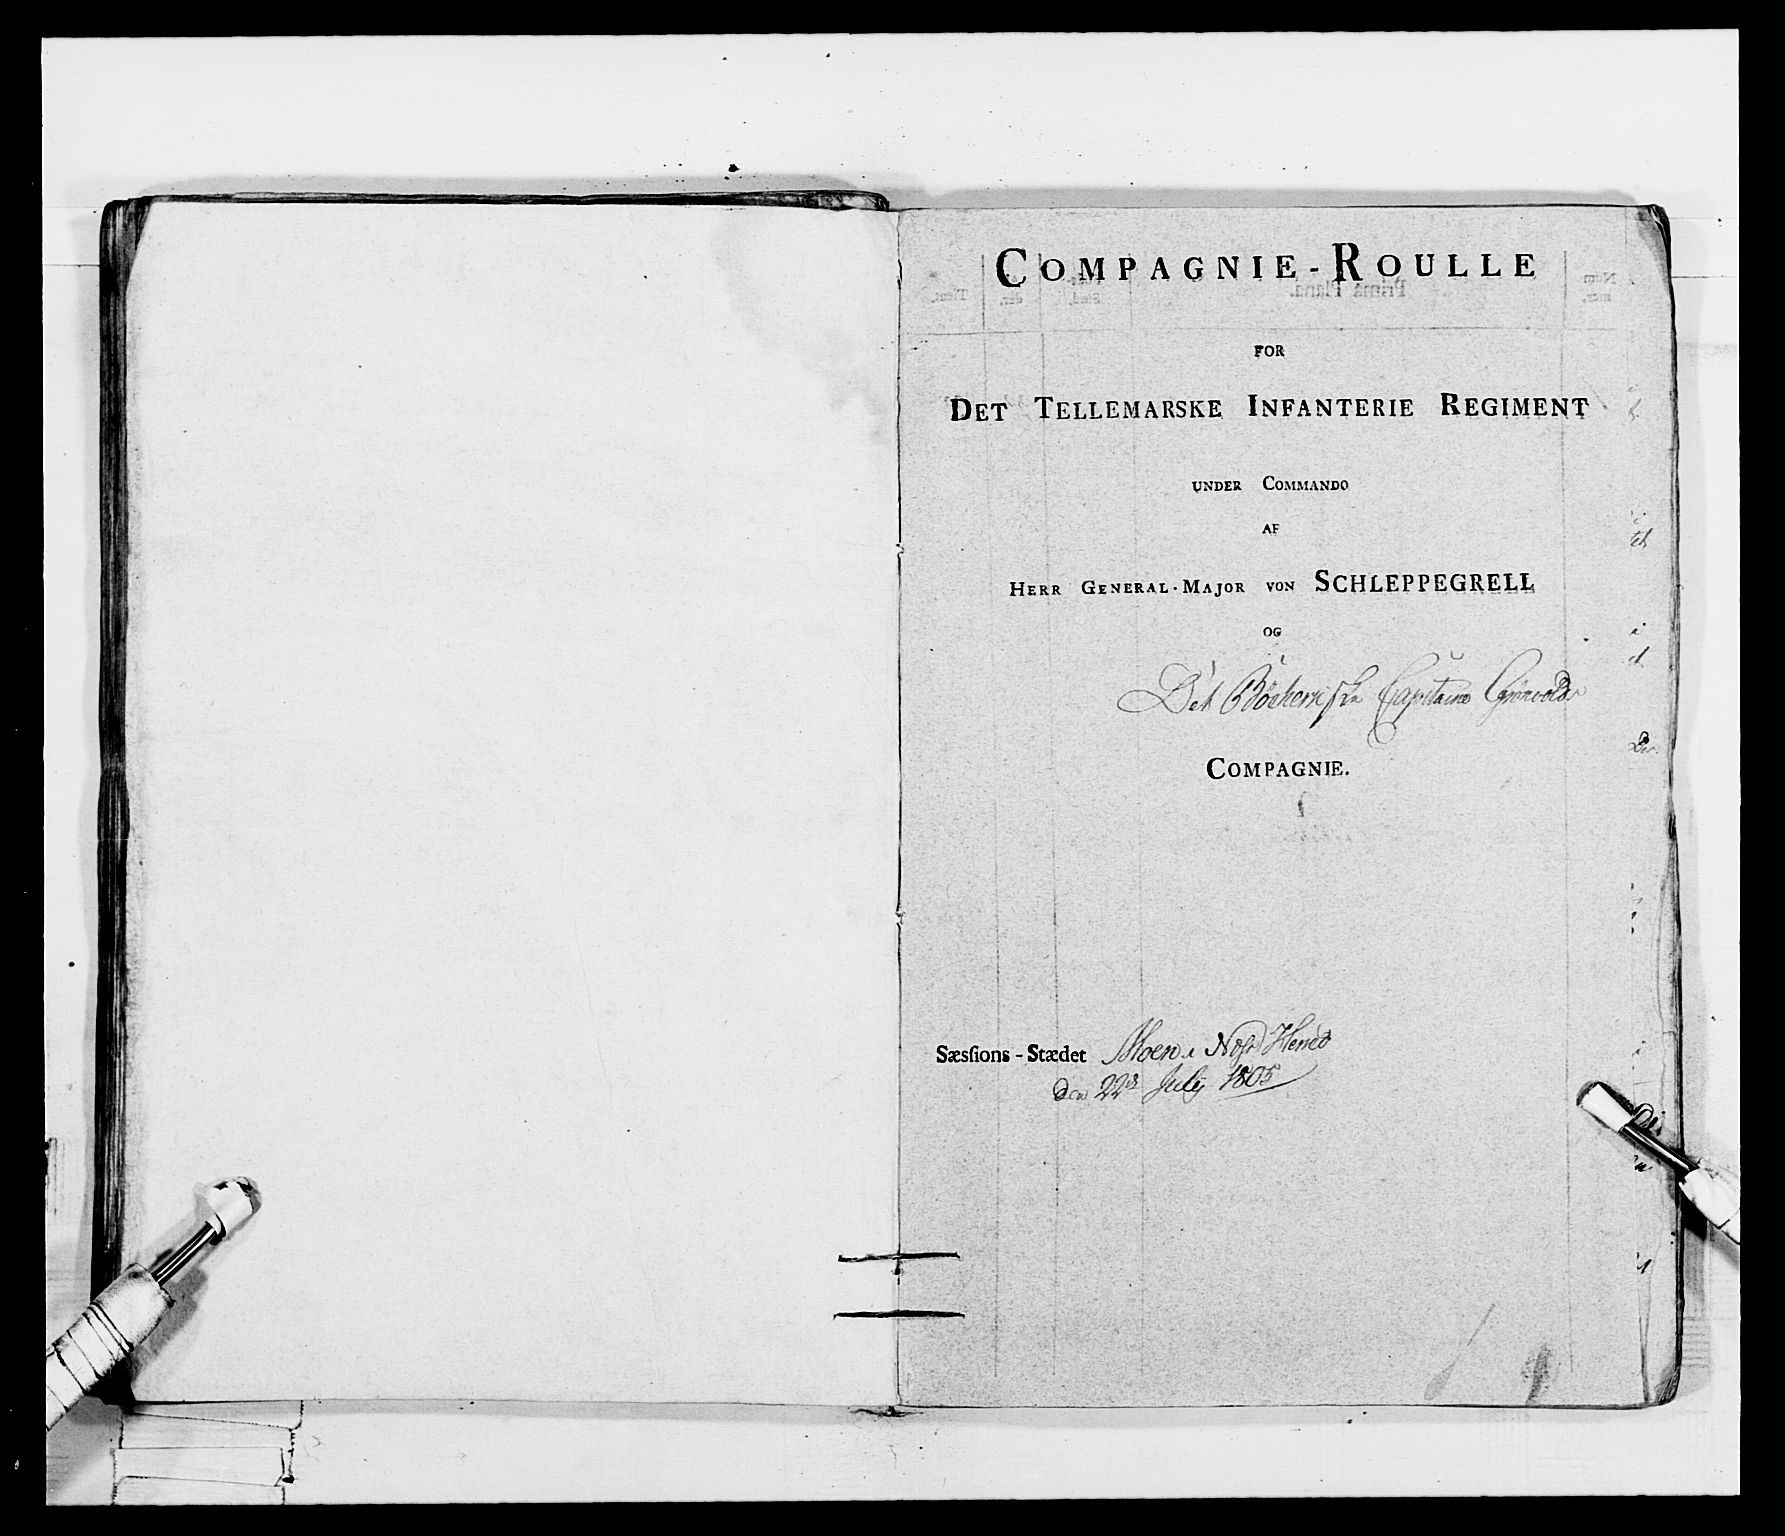 COMPAGNIE-ROULLE
FOR
DET TELLEMARSKE INFANTERIE REGIMENT
UNDER COMMANDO
AF
HERR GENERAL-MAJOR VON SCHLEPPEGRELL
OG
Det Böeherreske Capitaine Grönvolds
COMPAGNIE.
Sæsſions-Stædet Moen i Nos Hered
den 22d July 1805